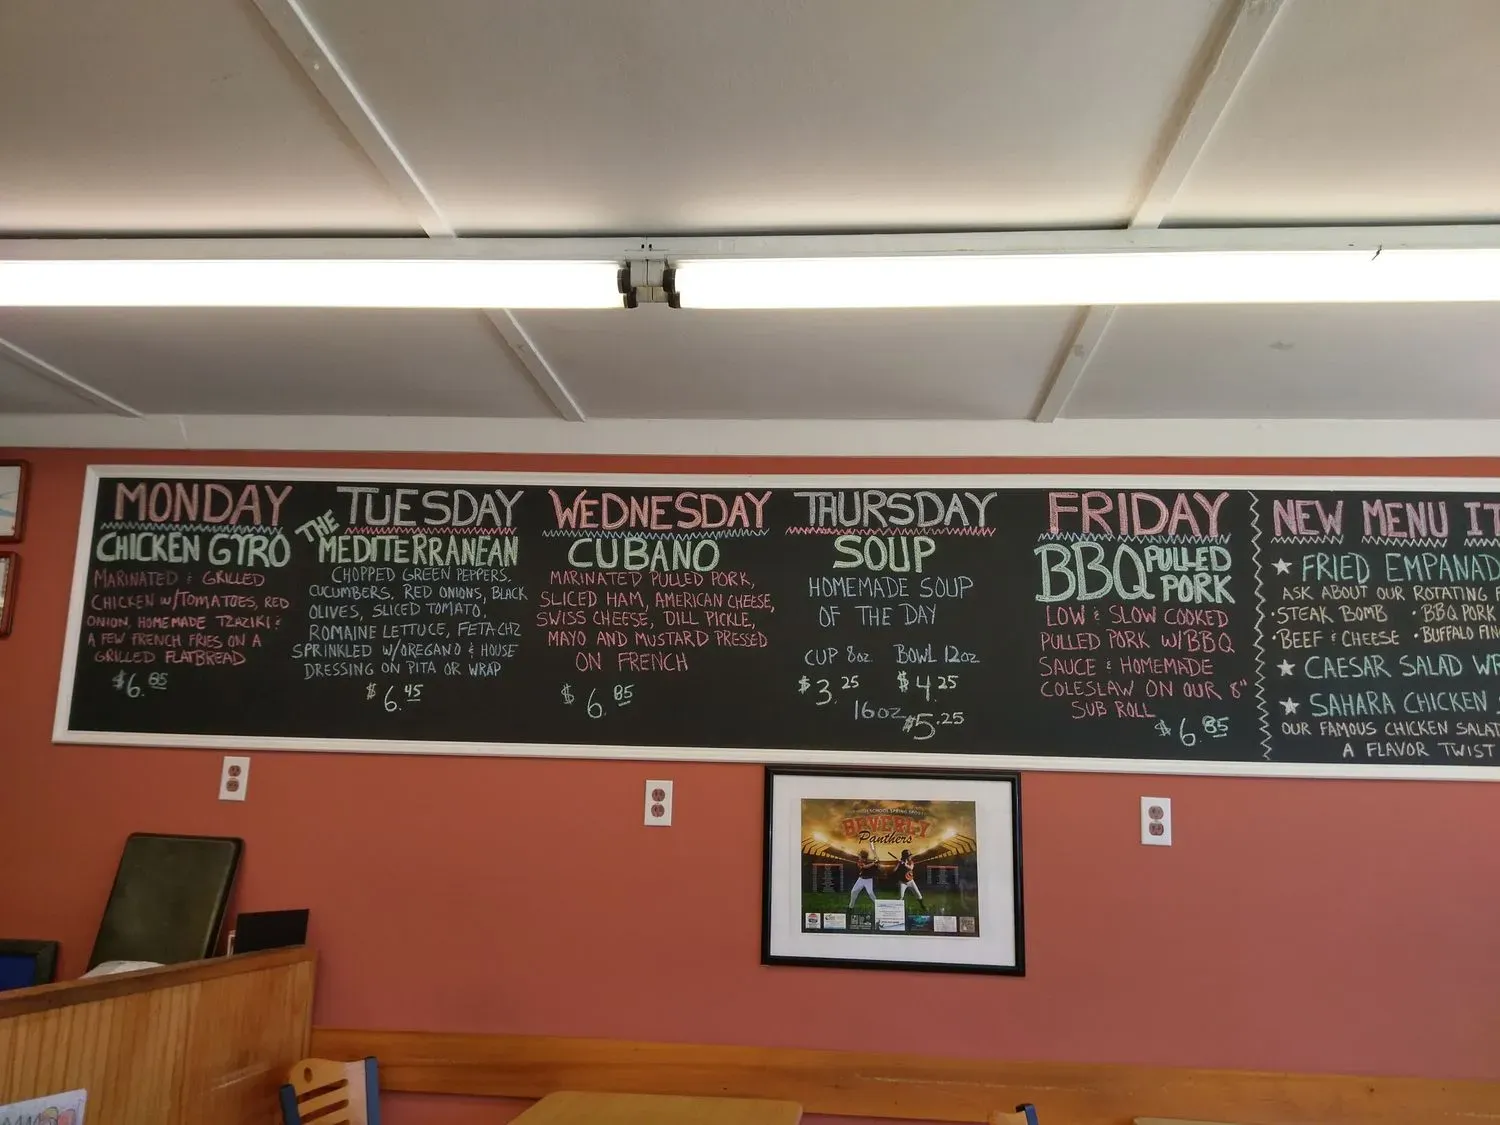 MONDAY
CHICKEN GYRO
MARINATED & GRILLED
CHICKEN W/TOMATOES, RED
ONION, HOMEMADE TZAZIKI &
A FEW FRENCH FRIES ON A
GRILLED FLATBREAD
$6.85
TUESDAY
THE
MEDITERRANEAN
CHOPPED GREEN PEPPERS,
CUCUMBERS, RED ONIONS, BLACK
OLIVES, SLICED TOMATO,
ROMAINE LETTUCE, FETA CHZ
SPRINKLED W/OREGANO & HOUSE
DRESSING ON PITA OR WRAP
$6.45
WEDNESDAY
CUBANO
MARINATED PULLED PORK,
SLICED HAM, AMERICAN CHEESE,
SWISS CHEESE, DILL PICKLE,
MAYO AND MUSTARD PRESSED
ON FRENCH
$6.85
THURSDAY
SOUP
HOMEMADE SOUP
OF THE DAY
CUP 8oz. BOWL 12oz
$3.25 $4.25
16oz $5.25
FRIDAY
BBQ PULLED
PORK
LOW & SLOW COOKED
PULLED PORK W/BBQ
SAUCE & HOMEMADE
COLESLAW ON OUR 8"
SUB ROLL
$6.85
NEW MENU IT
FRIED EMPANAD
ASK ABOUT OUR ROTATING F
•STEAK BOMB •BBQ PORK
•BEEF & CHEESE •BUFFALO FIN
CAESAR SALAD WR
SAHARA CHICKEN
OUR FAMOUS CHICKEN SALAT
A FLAVOR TWIST
BEVERLY
Panthers